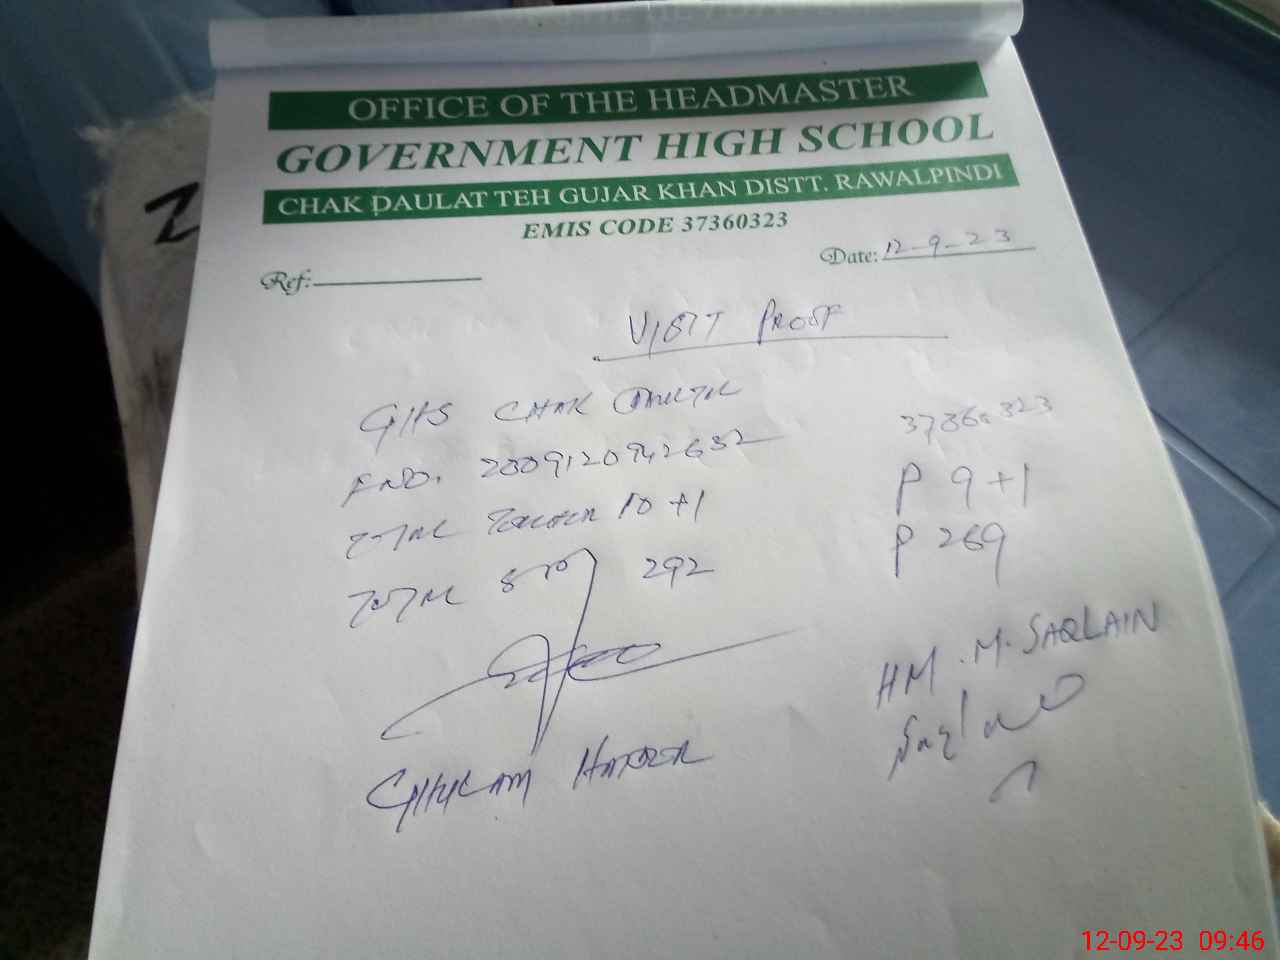 OFFICE OF THE HEADMASTER
GOVERNMENT HIGH SCHOOL
CHAK DAULAT TEH GUJAR KHAN DISTT. RAWALPINDI
EMIS CODE 37360323
Ref:
Date: 12-9-23
VISIT PROOF
GHS CHAK DAULTAL 37360323
TOTAL Teacher 10+1 P 9+1
TOTAL 292 P 269
HM. M. SAQLAIN
Saqlain
GHULAM
12-09-23 09:46